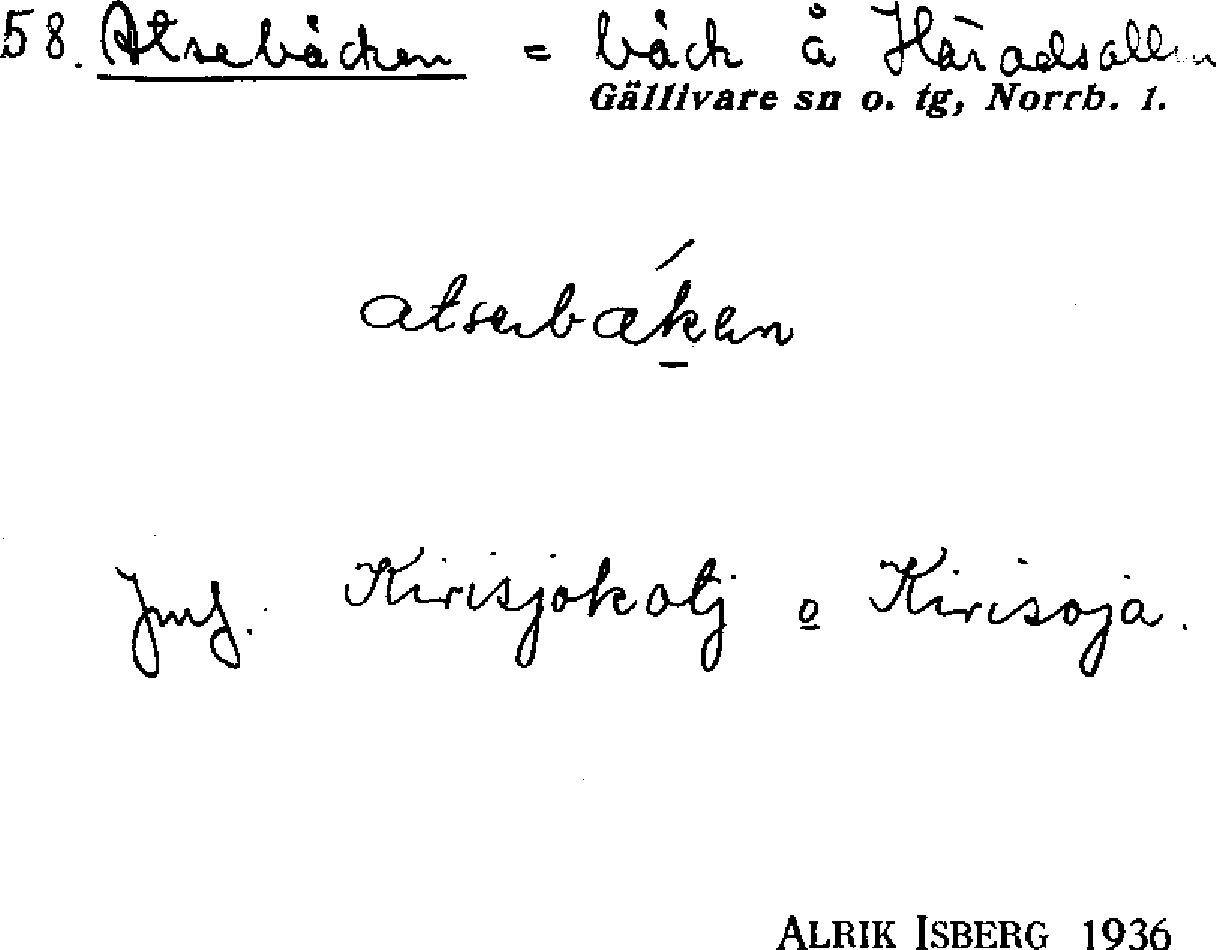 58. Atsebäcken = bäck å Häradsallm
Gällivare sn o. tg, Norrb. l.
atsebæken
Jmf. Kirisjokotj o Kirisoja.
ALRIK ISBERG 1936